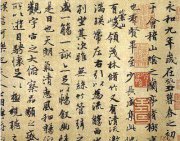 永和九年歲在癸丑暮春之初
會稽山陰之蘭亭脩禊
群賢畢至少長咸集
有崇山峻領茂林脩竹又有清流
帶左右引以為流觴曲
坐其次雖無絲竹管弦
盛一觴一詠亦足以暢敘幽情
是日也天朗氣清惠風和暢
觀宇宙之大俯察品類之盛
所以遊目騁懷足以極